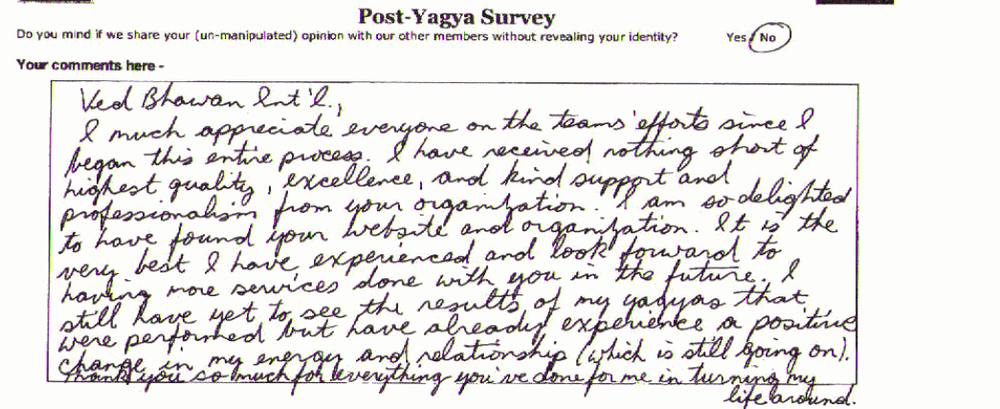 Post-Yagya Survey
Do you mind if we share your (un-manipulated) opinion with our other members without revealing your identity? Yes/No
Your comments here -
Ved Bhawan Int'l.,
I much appreciate everyone on the teams' efforts since I
began this entire process. I have received nothing short of
highest quality, excellence, and kind support and
professionalism from your organization. I am so delighted
to have found your website and organization. It is the
very best I have experienced and look forward to
having more services done with you in the future. I
still have yet to see the results of my yagyas that
were performed but have already experience a positive
change in my energy and relationship (which is still going on).
Thank you so much for everything you've done for me in turning my
life around.